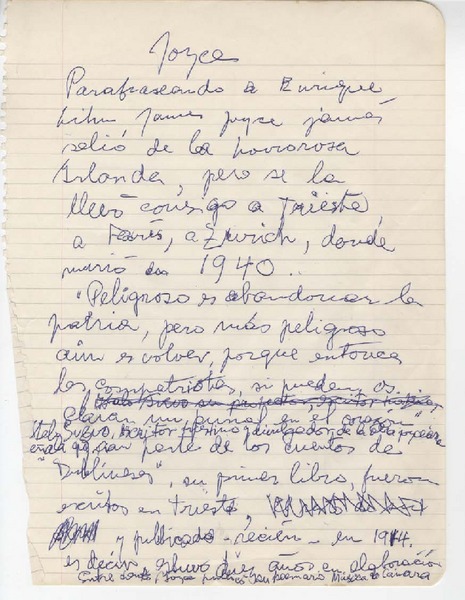 Joyce
Parafraseando a Enrique
Lihn James Joyce jamás
salió de la horrorosa
Irlanda, pero se la
llevó consigo a Trieste,
a París, a Zurich, donde
murió en 1940..
"Peligroso es abandonar la
patria, pero más peligroso
aún es volver, porque entonces
los compatriotas, si pueden, os
clavarán un puñal en el corazón"
Italo Svevo, escritor triestino y divulgador de la obra joyceana
señala que gran parte de los cuentos de
Dublineses", su primer libro, fueron
escritos en Trieste,
y publicado - recién - en 1914.
es decir, estuvo diez años en elaboración
Entre tanto, Joyce publicó su poemario Música de Cámara